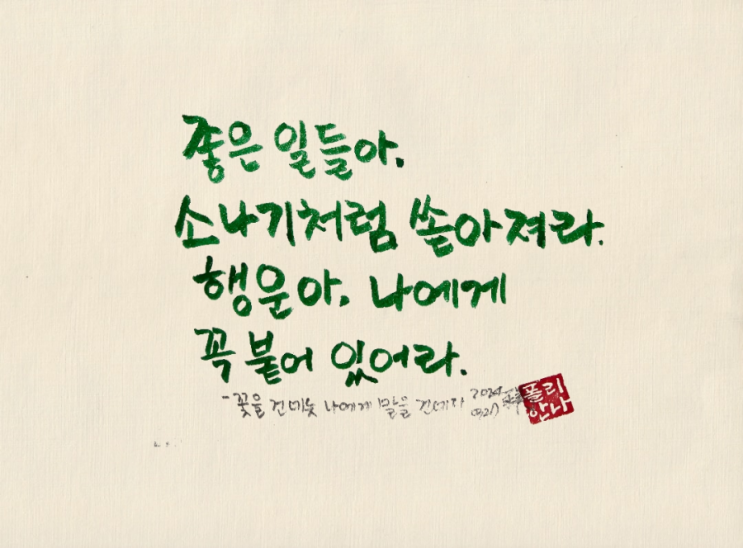 좋은 일들아.
소나기처럼 쏟아져라.
행운아. 나에게
꼭 붙어 있어라.
-꽃을 건네듯 나에게 말을 건네다
2024
폴리
안나